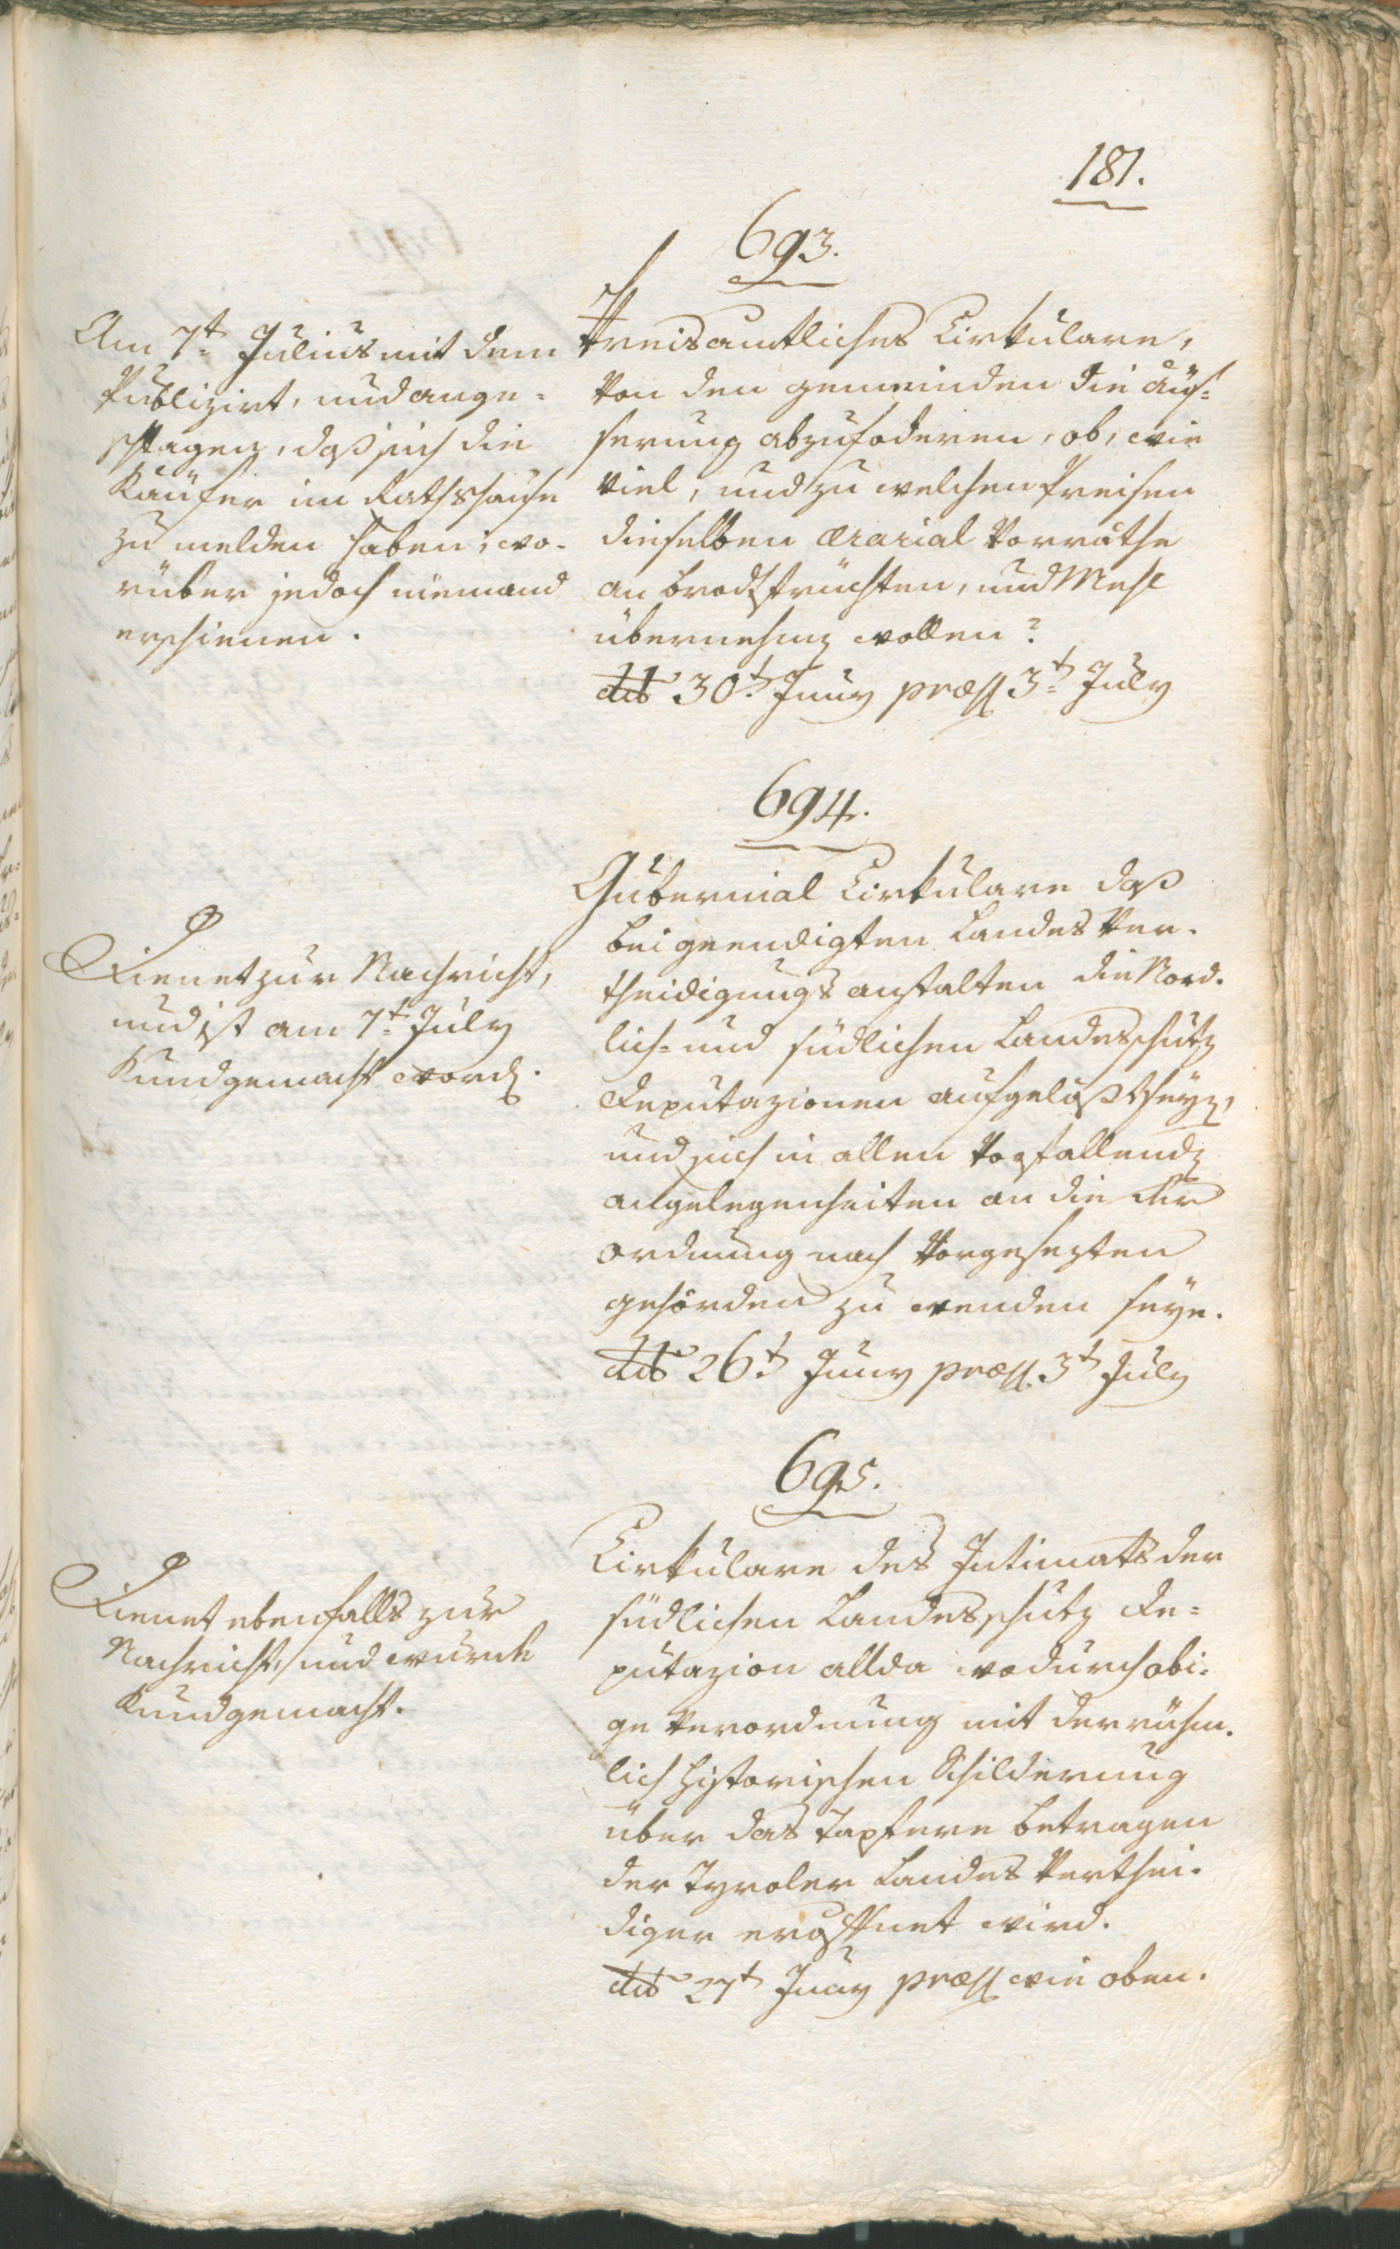 181.
693.
Am 7t Julius mit dem
Publizirt, und ange-
schlagen, daß sich die
Käufer im Rathshause
zu melden haben; wo-
rüber jedoch niemand
erschienen.
Kreisamtliches Cirkulare,
von den gemeinden die Aüs-
serung abzufoderen, ob, wie
viel, und zu welchen Preisen
dieselben ærarial Vorräthe
an brodfrüchten, und Mehl
übernehmen wollen?
dto 30t Juny præs 3t July
694.
Dienet zur Nachricht,
und ist am 7t July
Kundgemacht worden.
Gubernial Cirkulare daß
bei geendigten Landes Ver-
theidigungs anstalten die Nord-
lich- und südlichen Landesschutz
Deputazionen aufgelößt seyen,
und sich in allen Vorfallenden
angelegenheiten an die der
ordnung nach Vorgesezten
gehörden zu wenden seye.
dto 26t Juny præs. 3t July
695.
Dienet ebenfalls zur
Nachricht, und wurde
Kundgemacht.
Cirkulare des Intimats der
südlichen Landesschutz De-
putazion allda wodurch obi-
ge Verordnung mit der rühm-
lich historischen Schilderung
über das tapfere betragen
der Tyroler Landes Verthei-
diger eröffnet wird.
dto 27t Juny præs wie oben.